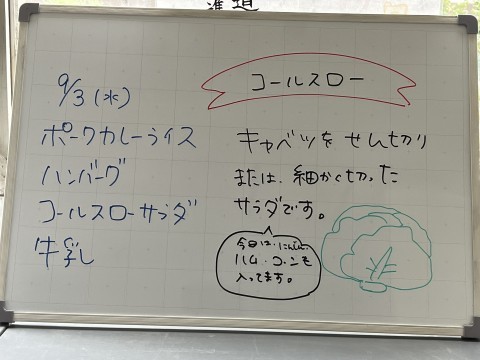 進道
9/3(水)
ポークカレーライス
ハンバーグ
コールスローサラダ
牛乳
コールスロー
キャベツをせん切り
または、細かく切った
サラダです。
今日は、にんじん、
ハム・コーンも
入ってます。